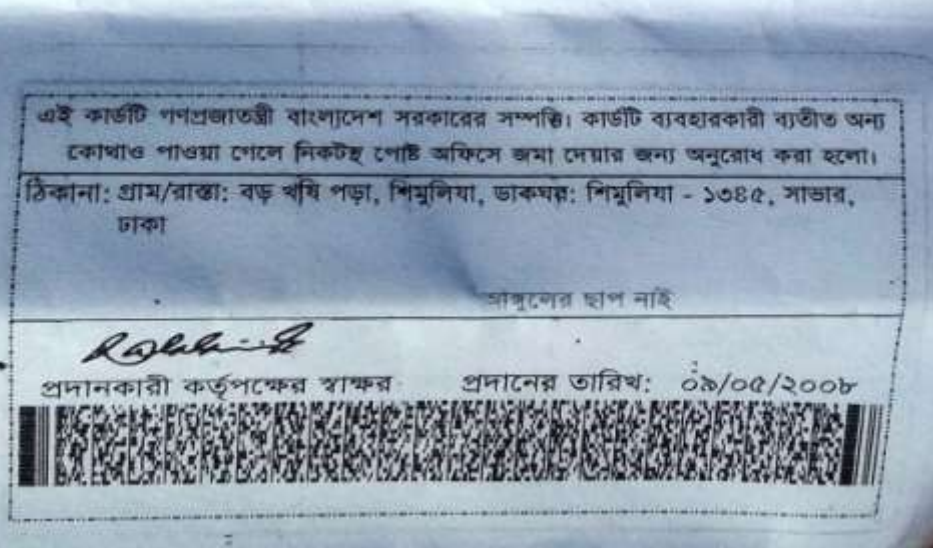 এই কার্ডটি গণপ্রজাতন্ত্রী বাংলাদেশ সরকারের সম্পত্তি। কার্ডটি ব্যবহারকারী ব্যতীত অন্য
কোথাও পাওয়া গেলে নিকটস্থ পোষ্ট অফিসে জমা দেয়ার জন্য অনুরোধ করা হলো।
ঠিকানা: গ্রাম/রাস্তা: বড় ঋষি পড়া, শিমুলিযা, ডাকঘর: শিমুলিযা - ১৩৪৫, সাভার,
ঢাকা
আঙ্গুলের ছাপ নাই
প্রদানকারী কর্তৃপক্ষের স্বাক্ষর প্রদানের তারিখ: ০৯/০৫/২০০৮